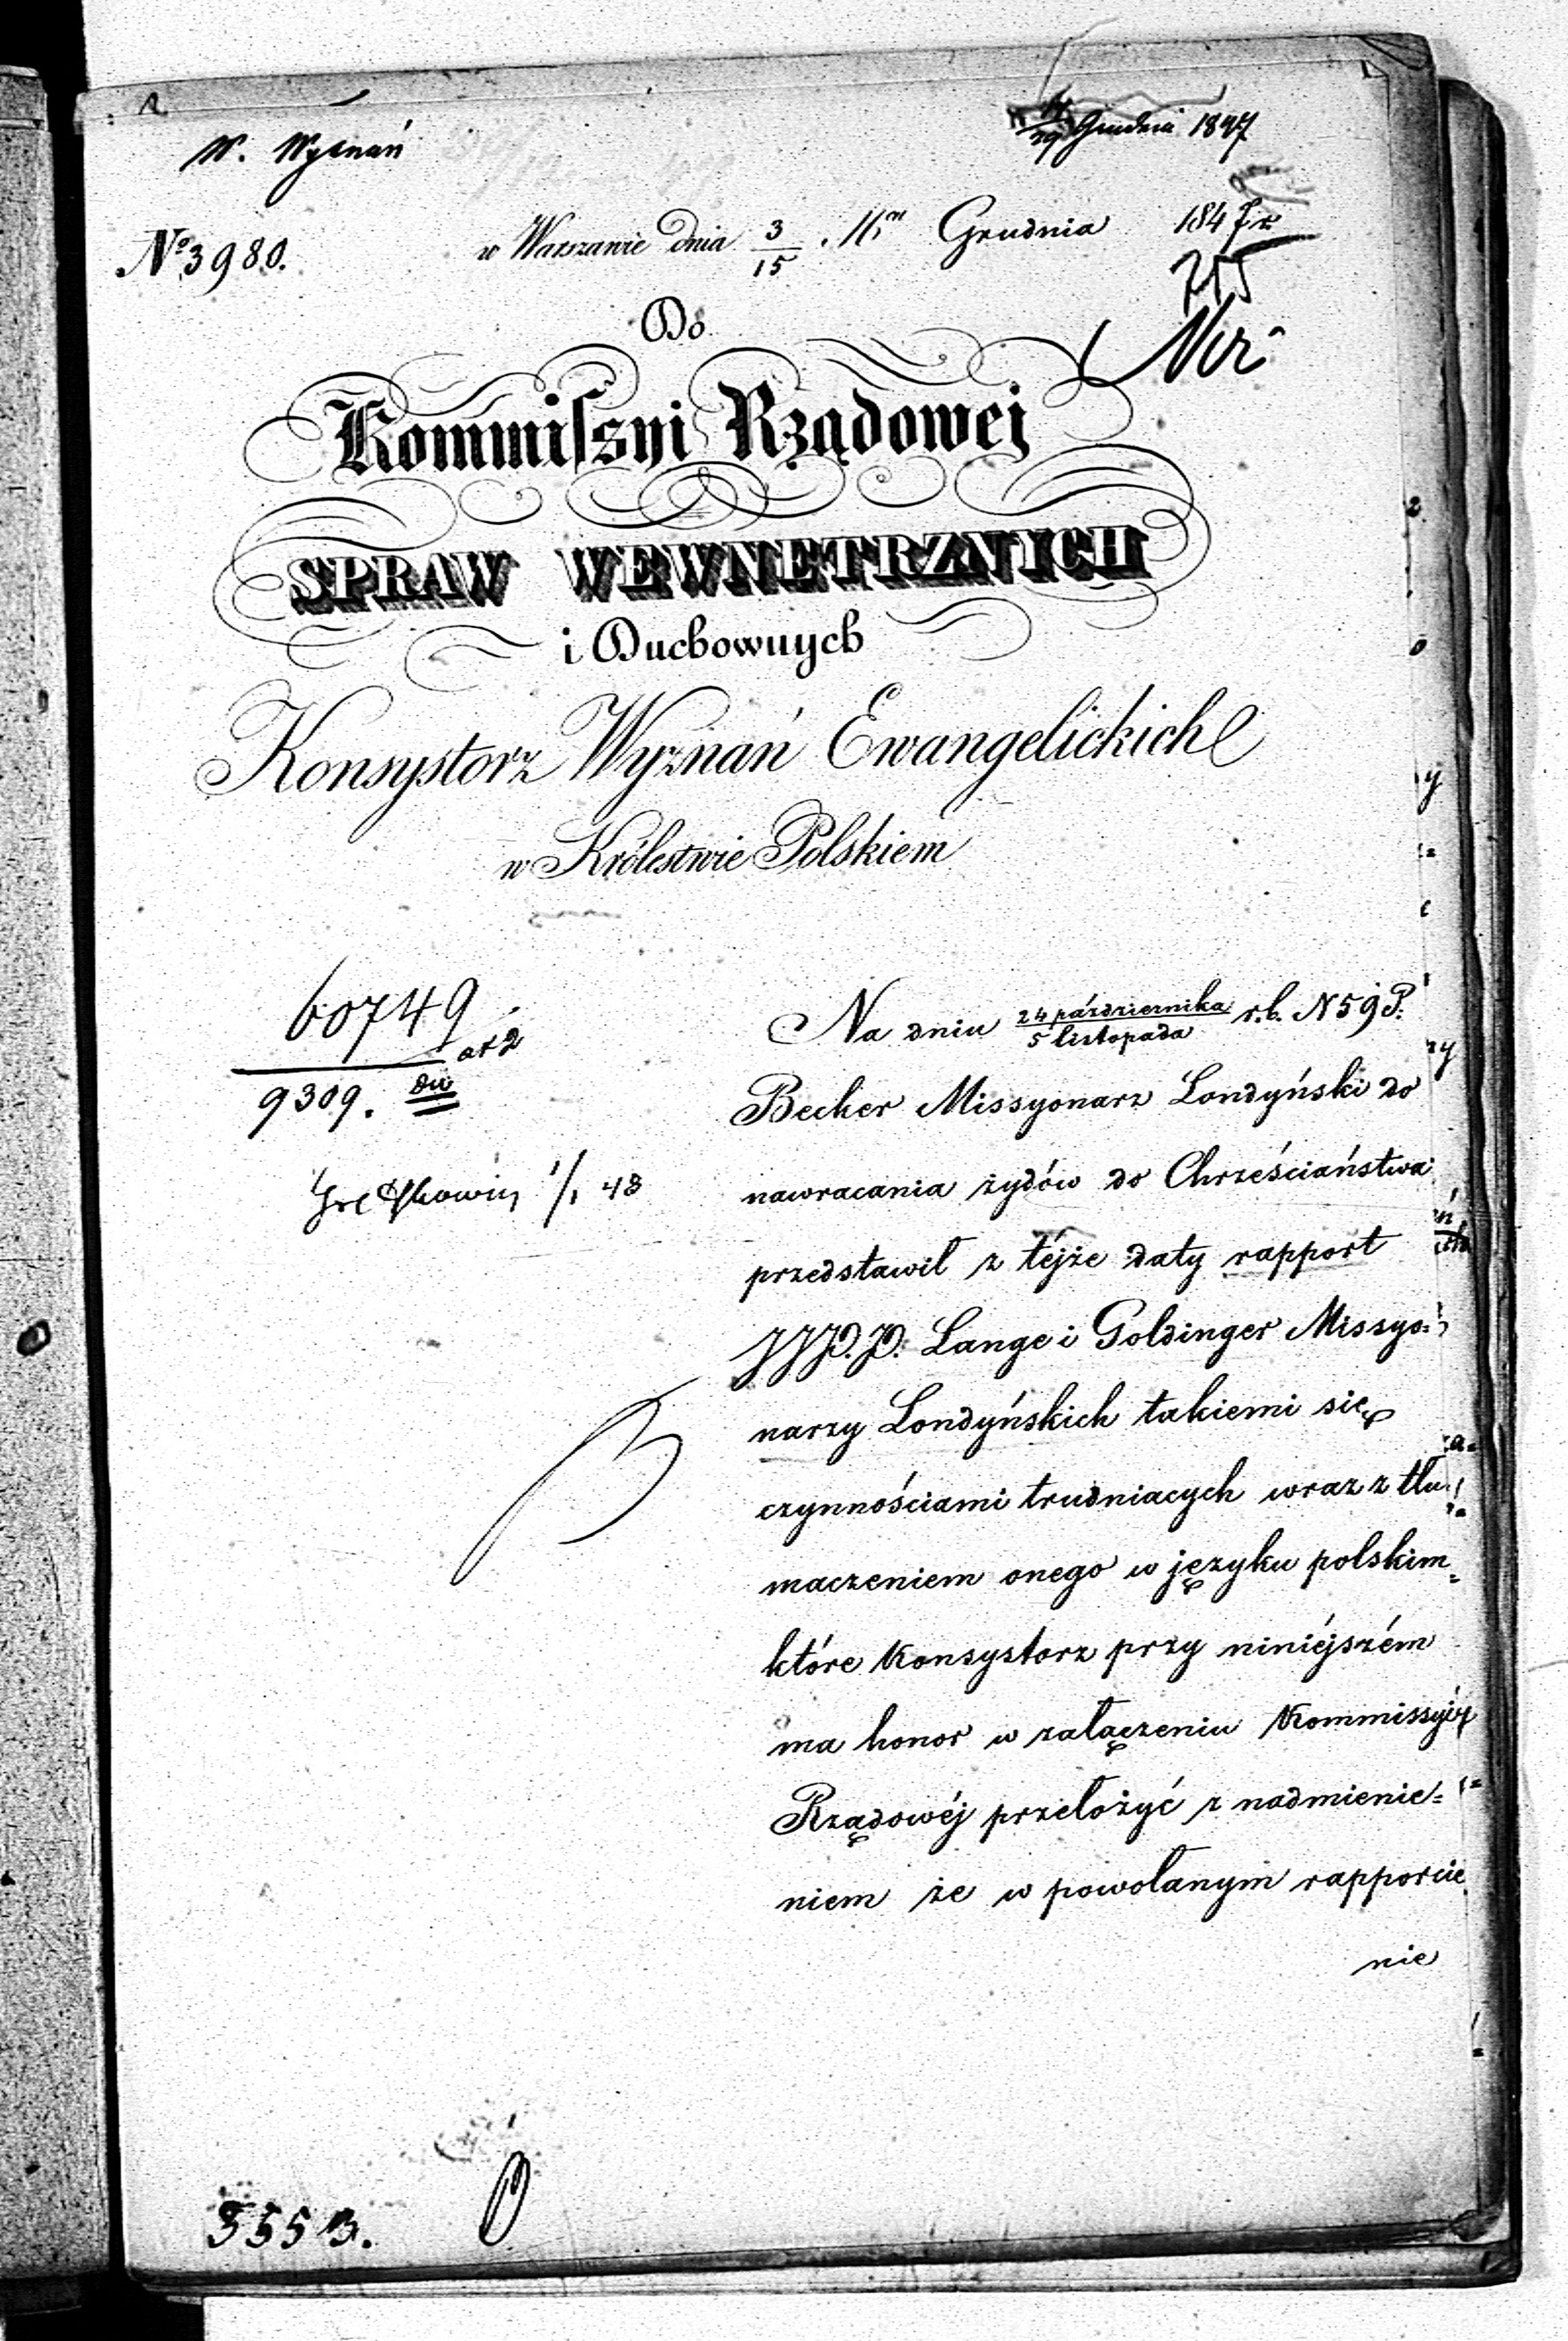 W. Wyznań
17/29 Grudnia 1847
№ 3980.
w Warszawie dnia 3/15 Mca Grudnia 1847 r.
215
Do
Kommiſsyi Rządowej
SPRAW WEWNETRZNYCH
i Duchownych
Konsystorz Wyznań Ewangelickich
w Królestwie Polskiem
60749
9309.
1/1 48
Na dniu 24 października/5 listopada r.b. N 59 P.
Becker Missyonarz Londyński do
nawracania żydów do Chrześciaństwa
przedstawił z téjże daty rapport
JJP.P. Lange i Goldinger Missyo=
narzy Londyńskich takiemi się
czynnościami trudniacych wraz z tłu=
maczeniem onego w języku polskim
które Konsystorz przy niniéjszém
ma honor w załączeniu Kommissyi
Rządowéj przełożyć z nadmienie=
niem że w powołanym rapporcie
nie
5553.